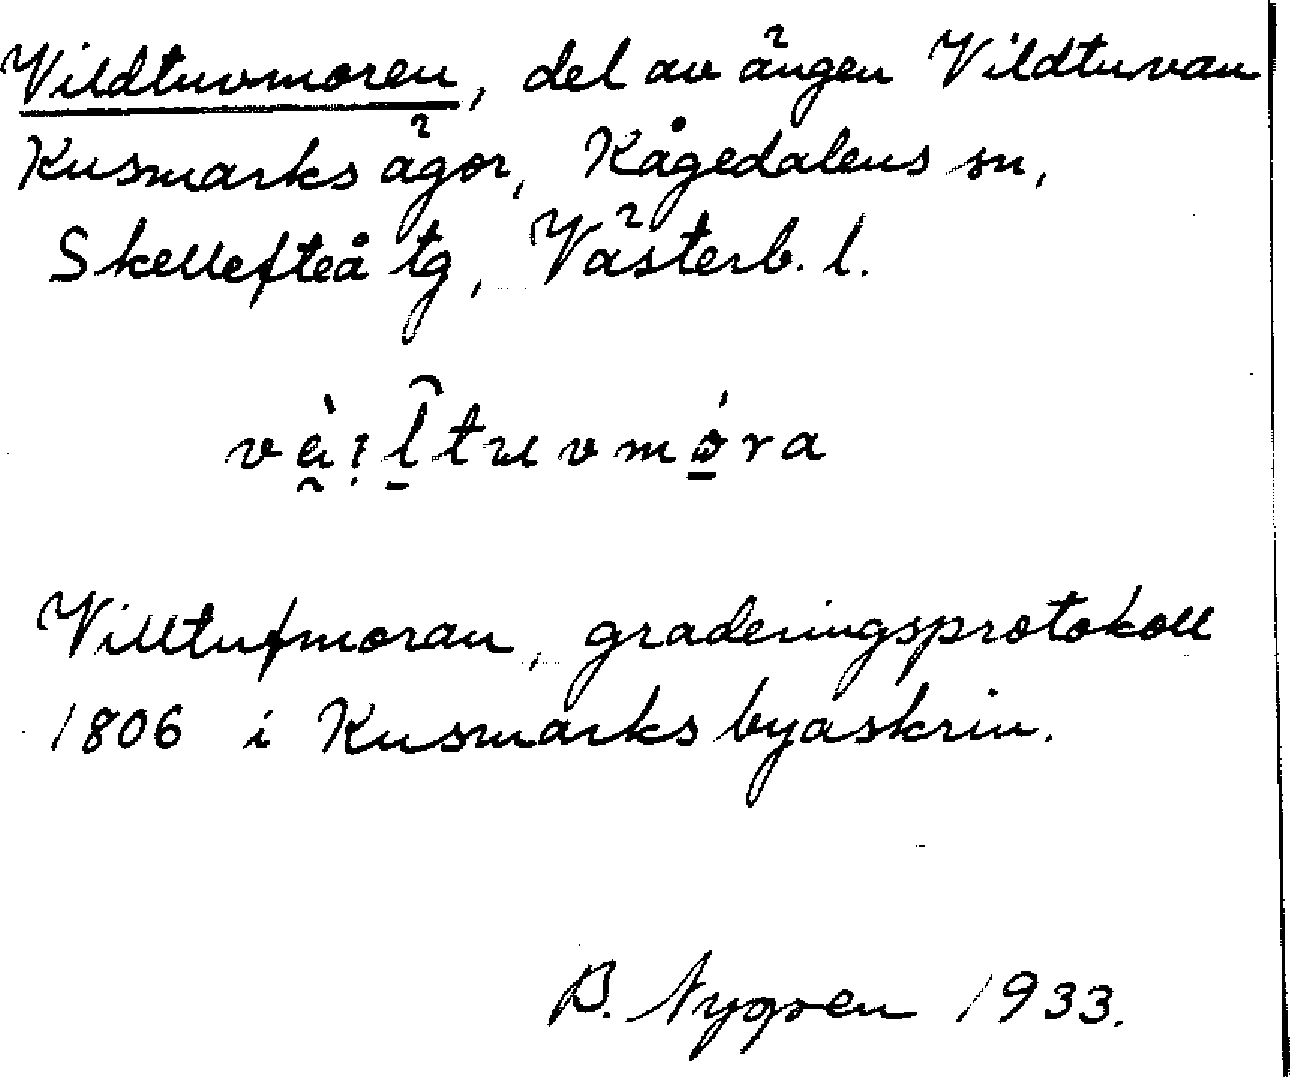 Vildtuvmoren, del av ängen Vildtuvan
Kusmarks ägor, Kågedalens sn,
Skellefteå tg, Västerb. l.
Villtufmoran, graderingsprotokoll
1806 i Kusmarks byaskrin.
B. Nygren 1933.